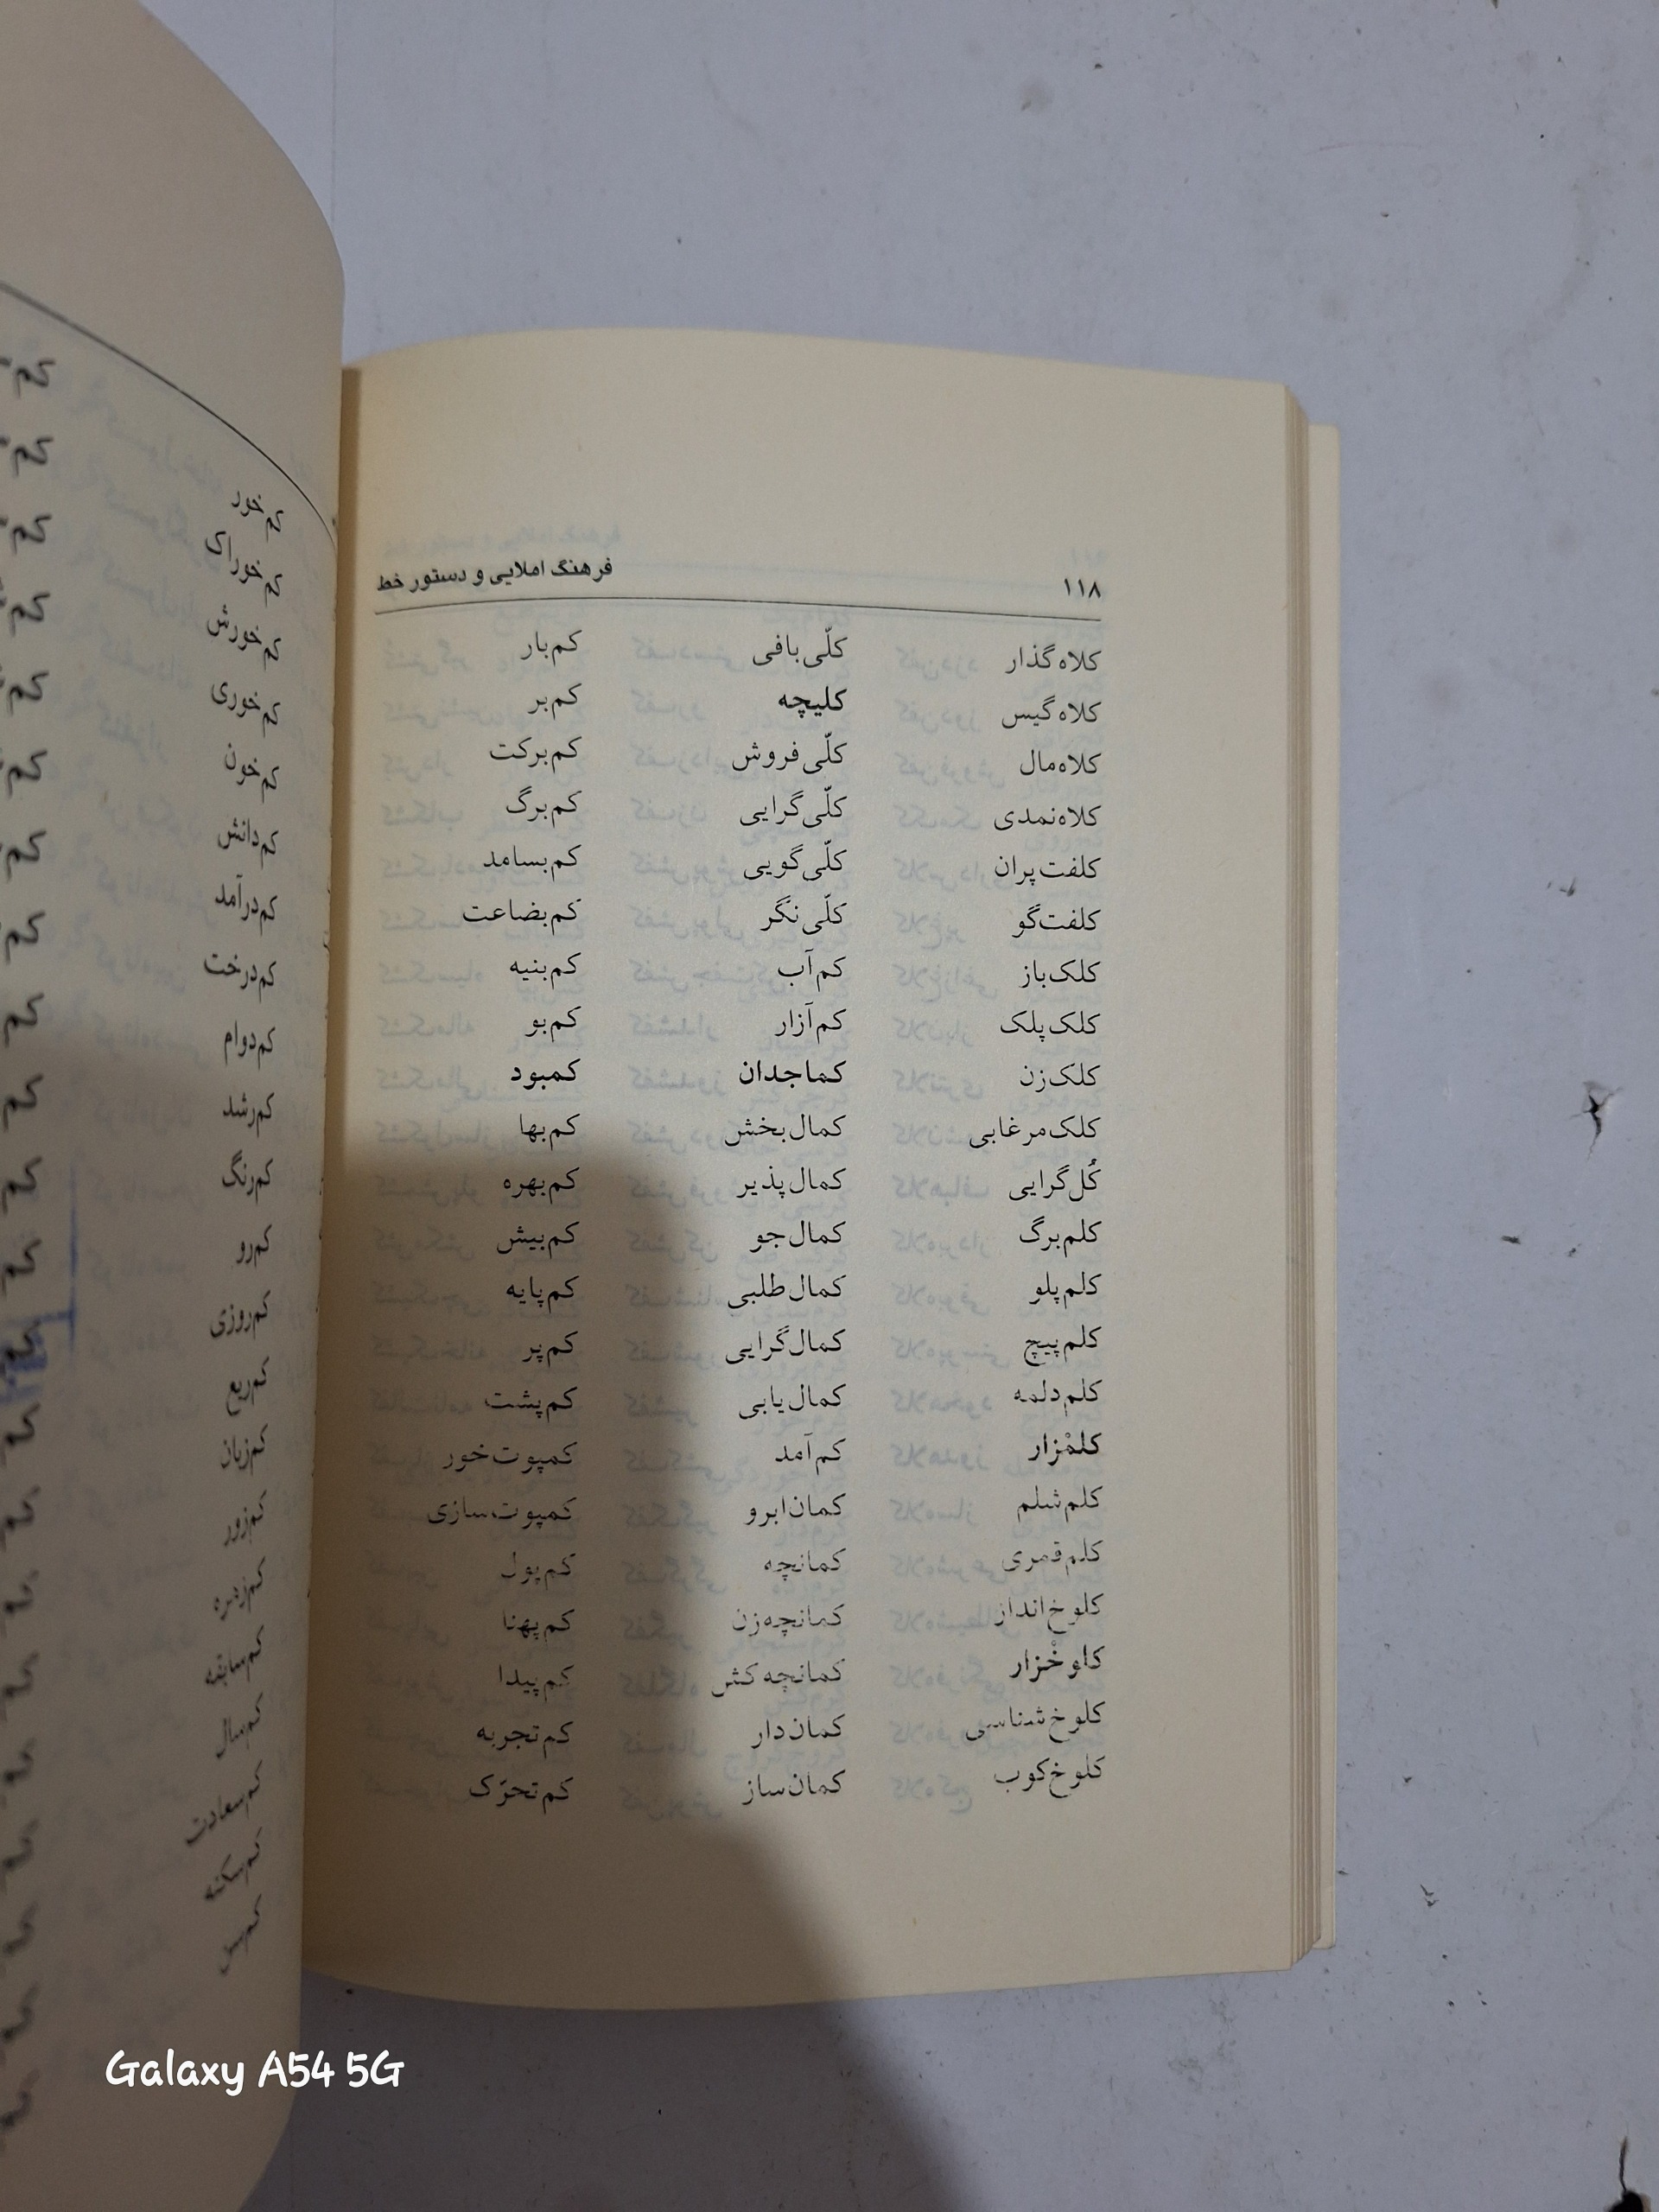 ۱۱۸
فرهنگ املایی و دستور خط
کلاه‌گذار
کلاه‌گیس
کلاه‌مال
کلاه‌نمدی
کلفت‌پران
کلفت‌گو
کلک‌باز
کلک‌پلک
کلک‌زن
کلک‌مرغابی
کُل‌گرایی
کلم‌برگ
کلم‌پلو
کلم‌پیچ
کلم‌دلمه
کلمْزار
کلم‌شلم
کلم‌قمری
کلوخ‌انداز
کلوخْزار
کلوخ‌شناسی
کلوخ‌کوب
کلّی‌بافی
کلیچه
کلّی‌فروش
کلّی‌گرایی
کلّی‌گویی
کلّی‌نگر
کم‌آب
کم‌آزار
کماجدان
کمال‌بخش
کمال‌پذیر
کمال‌جو
کمال‌طلبی
کمال‌گرایی
کمال‌یابی
کم‌آمد
کمان‌ابرو
کمانچه
کمانچه‌زن
کمانچه‌کش
کمان‌دار
کمان‌ساز
کم‌بار
کم‌بر
کم‌برکت
کم‌برگ
کم‌بسامد
کم‌بضاعت
کم‌بنیه
کم‌بو
کمبود
کم‌بها
کم‌بهره
کم‌بیش
کم‌پایه
کم‌پر
کم‌پشت
کمپوت‌خور
کمپوت‌سازی
کم‌پول
کم‌پهنا
کم‌پیدا
کم‌تجربه
کم‌تحرّک
کم‌خور
کم‌خورای
کم‌خورش
کم‌خوری
کم‌خون
کم‌دانش
کم‌درآمد
کم‌درخت
کم‌دوام
کم‌رشد
کم‌رنگ
کم‌رو
کم‌روزی
کم‌ریع
کم‌زبان
کم‌زور
کم‌زهره
کم‌سابقه
کم‌سال
کم‌سعادت
کم‌سکنه
Galaxy A54 5G